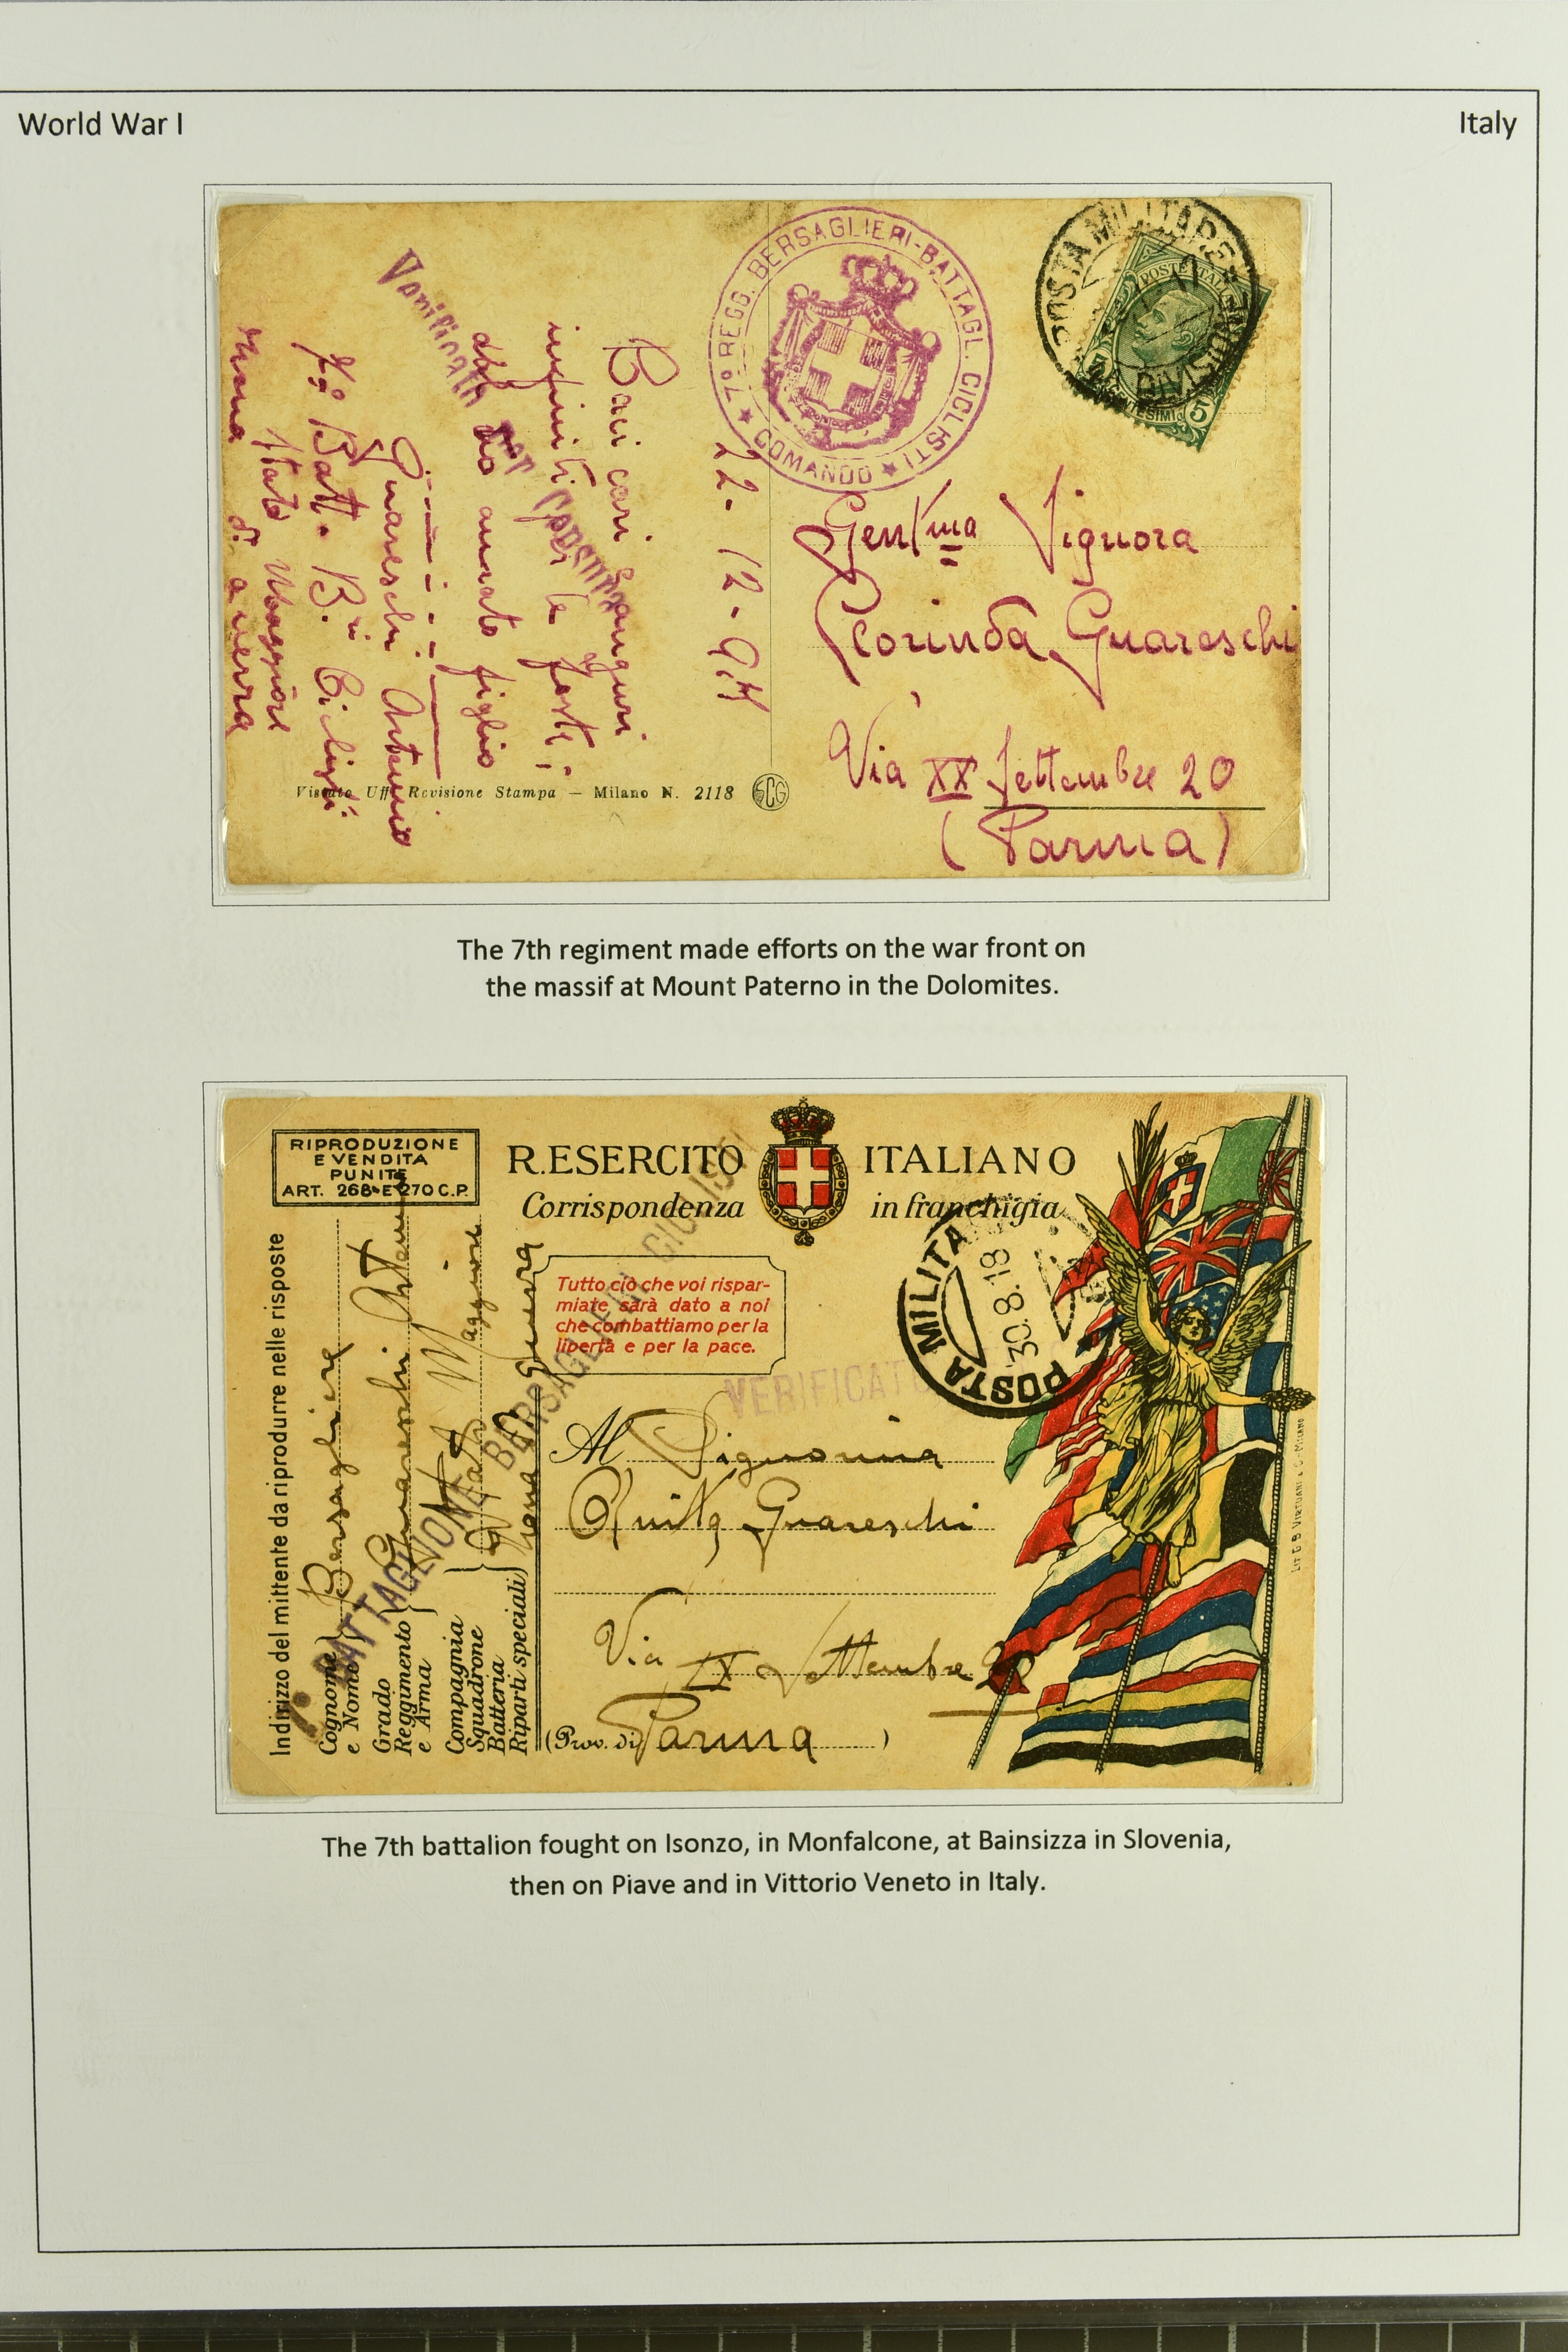 World War I
Italy
7º REGG. BERSAGLIERI-BATTAGL. CICLISTI
★ COMANDO ★
POSTA MILITARE
POSTE ITALIANE
CENTESIMI 5
22-12-917
Baci cari auguri
infiniti per le feste
dal tuo amato figlio
Guareschi Antenio
7º Batt. B.ri Ciclisti
Stato Maggiore
Zona di guerra
Verificato per Censura
Gent.ma Signora
Clorinda Guareschi
Via XX Settembre 20
(Parma)
Vistato Uff. Revisione Stampa — Milano N. 2118
SCG
The 7th regiment made efforts on the war front on
the massif at Mount Paterno in the Dolomites.
RIPRODUZIONE
E VENDITA
PUNITE
ART. 268 E 270 C.P.
R. ESERCITO ITALIANO
Corrispondenza in franchigia
Tutto ciò che voi rispar-
miate sarà dato a noi
che combattiamo per la
libertà e per la pace.
POSTA MILITA
30.8.18
VERIFICATO
BATTAGLIONE BERSAGLIERI CICLISTI
Indirizzo del mittente da riprodurre nelle risposte
Cognome e Nome
Bersagliere
Grado
Reggimento
e Arma
Guareschi
Compagnia
Squadrone
Batteria
Riparti speciali
Stato Maggiore
Zona Guerra
Al Signorina
Anita Guareschi
Via XX Settembre 20
(Prov. di Parma)
LIT. G. B. VIRTUANI & C - MILANO
The 7th battalion fought on Isonzo, in Monfalcone, at Bainsizza in Slovenia,
then on Piave and in Vittorio Veneto in Italy.